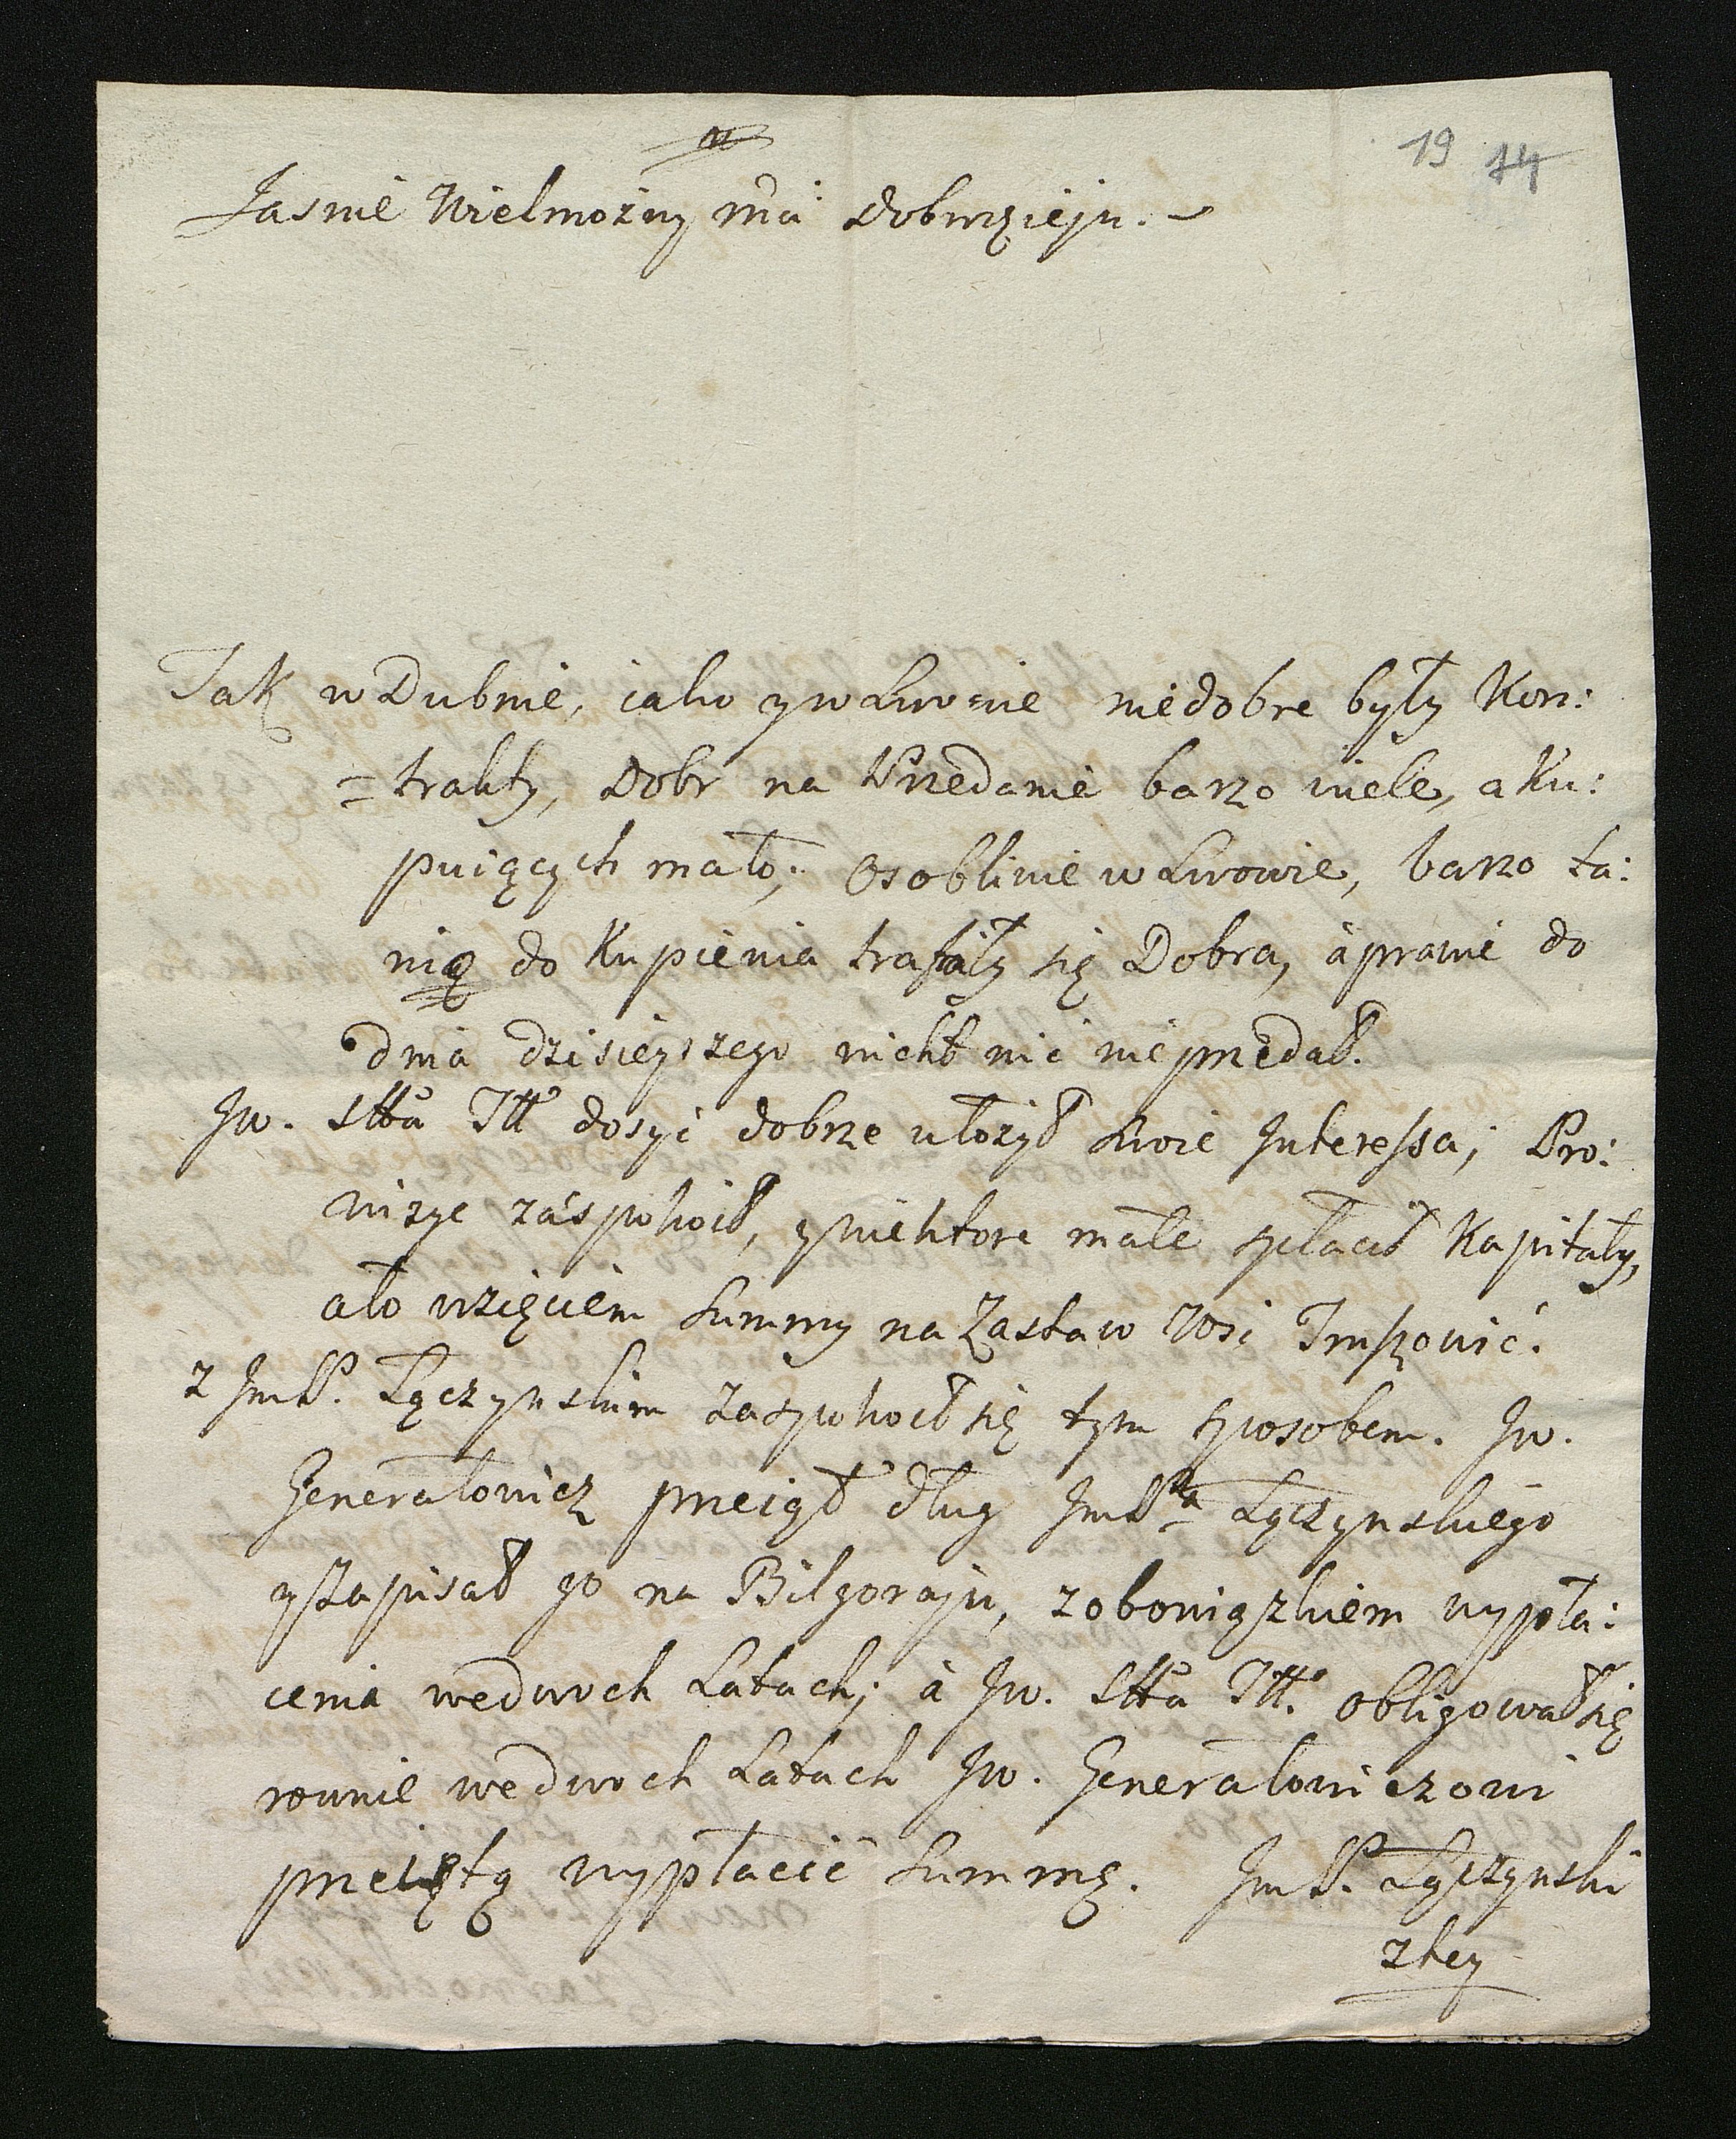 19 14
Jasnie Wielmożny Mci Dobrodzieju.
Tak w Dubnie, iako y w Lwowie niedobre były Kon:
=trakty, Dobr na Przedanie barzo wiele, a Ku:
puiących mało; Osobliwie w Lwowie, barzo ta:
nio do Kupienia trafiały się Dobra, á prawie do
dnia dzisieyszego nicht nic nie przedał.
Jw. Stta Itt dosyć dobrze ułożył swoie Interessa; Pro:
wizye záspokoił, y niektore małe spłacił Kapitały,
a to wzięciem Summy na Zastaw Wsi
z JmP. Łączynskim zaspokoił się tym sposobem. Jw.
Generałowicz przeiął dług JmPa Łączynskiego
y zapisał go na Biłgoraju, z obowiązkiem wypła:
cenia we dwoch Latach; á Jw. Stta Itt. obligował się
rownie we dwoch Latach Jw. Generałowiczowi
przeiętą wypłacić Summę. JmP. Łączynski
z tey